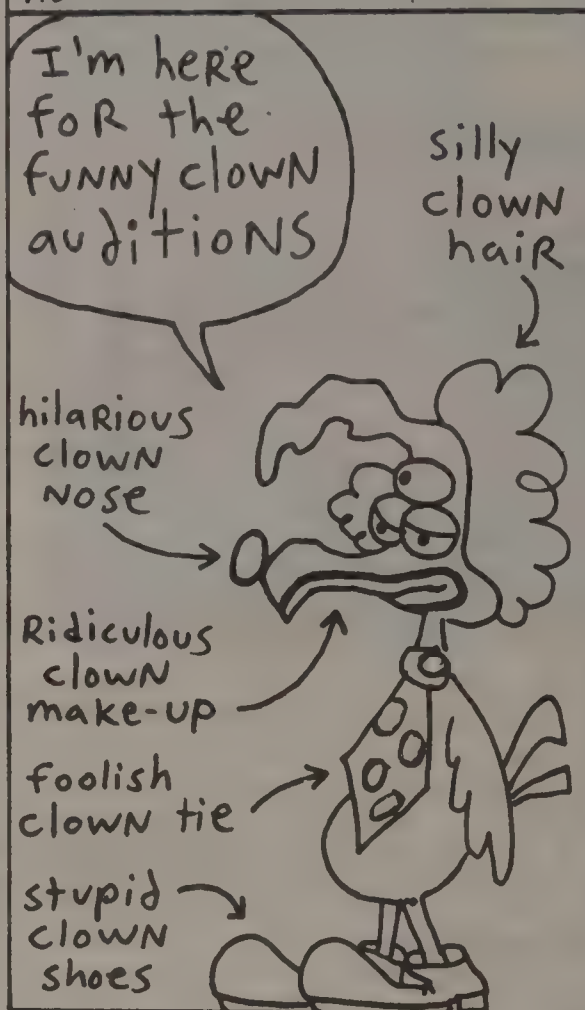 I'm here
for the
funny clown
auditions
silly
clown
hair
hilarious
clown
nose
Ridiculous
clown
make-up
foolish
clown tie
stupid
clown
shoes